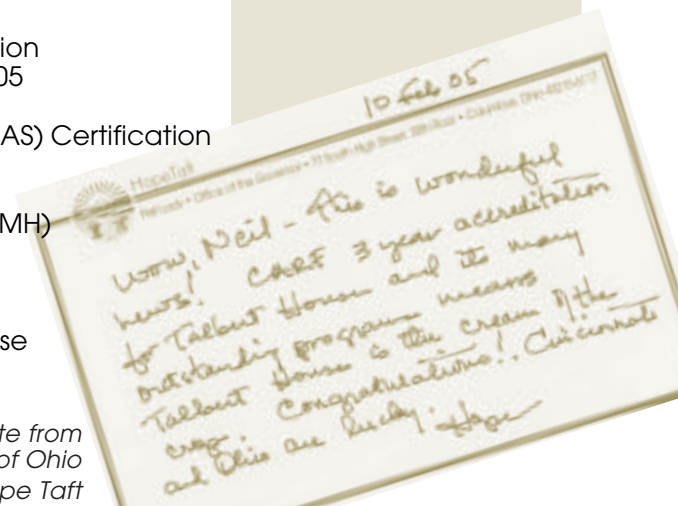 ion
05
AS) Certification
MH)
se
te from
of Ohio
pe Taft
10 Feb 05
Hope Taft
Office of the Governor • 77 South High Street, 30th Floor • Columbus, Ohio
Wow, Neil - this is wonderful
news! CARF 3 year accreditation
for Talbert House and its many
outstanding programs means
Talbert House is the cream of the
crop. Congratulations!! Cincinnati
and Ohio are lucky. Hope